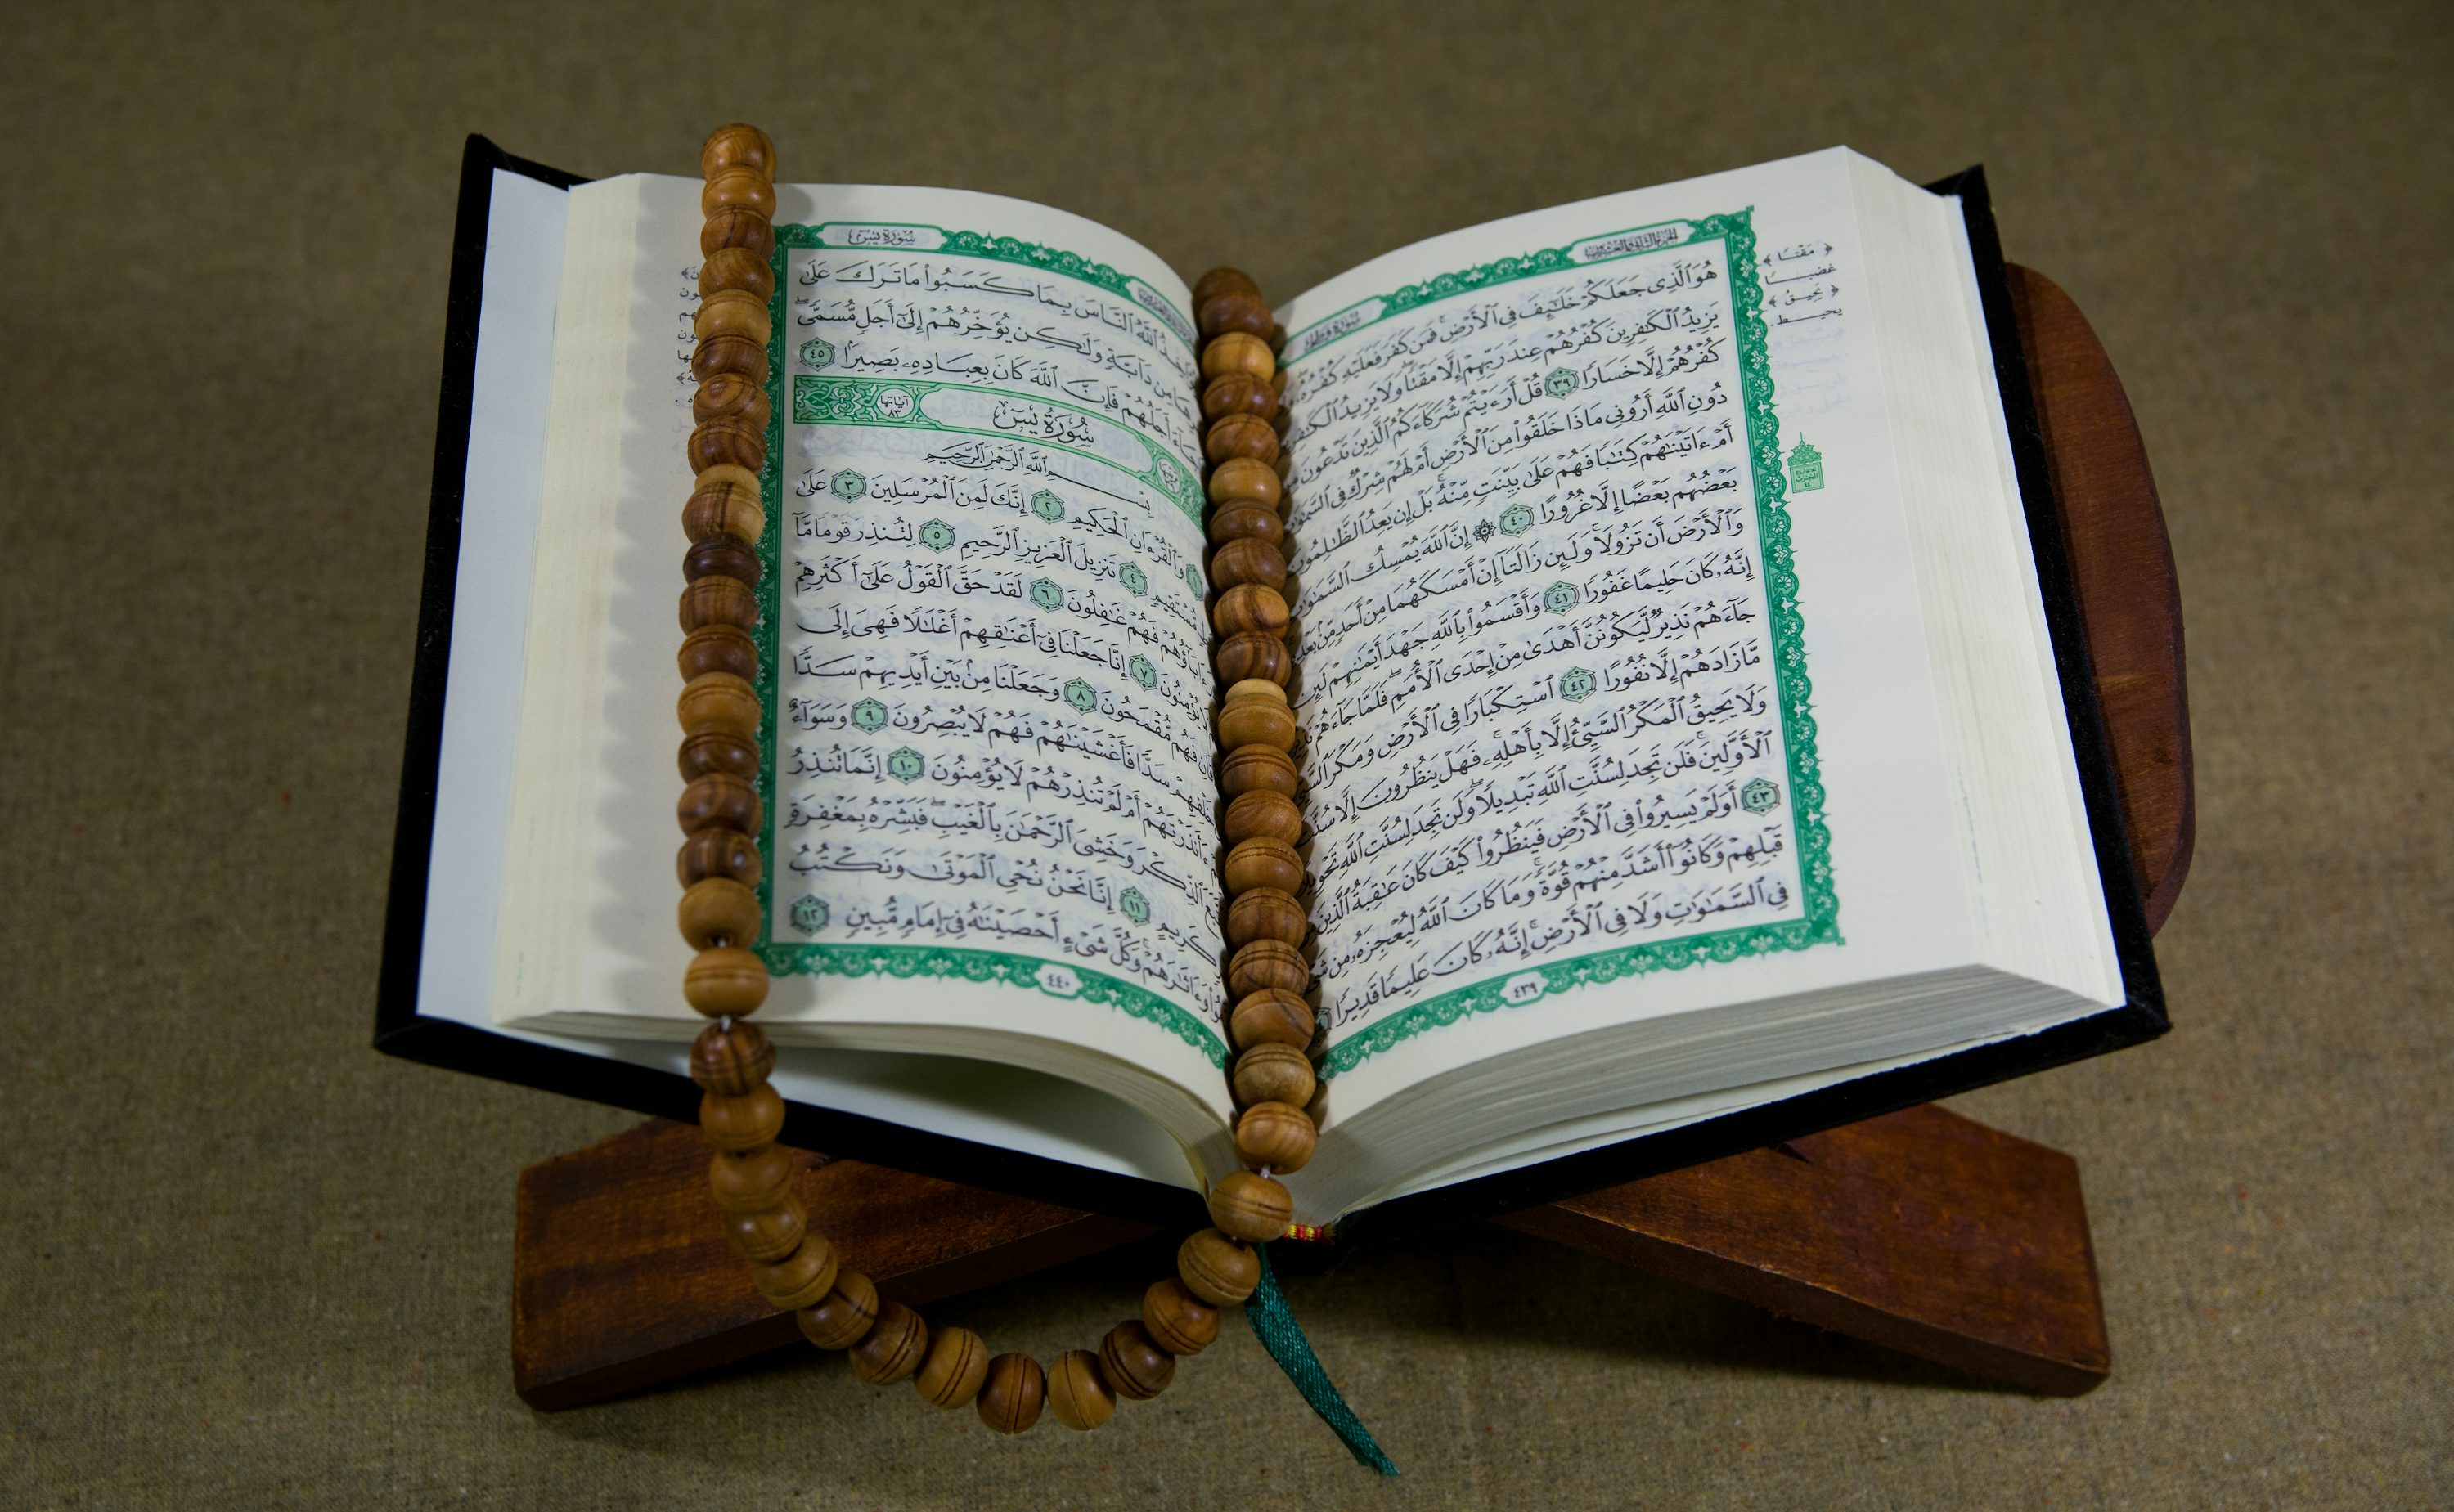 سُورَةُ فَاطِرٍ
الجُزْءُ الثَّانِي وَالعِشْرُونَ
هُوَ ٱلَّذِى جَعَلَكُمْ خَلَٰٓئِفَ فِى ٱلْأَرْضِ ۚ فَمَن كَفَرَ فَعَلَيْهِ كُفْرُهُۥ
يَزِيدُ ٱلْكَٰفِرِينَ كُفْرُهُمْ عِندَ رَبِّهِمْ إِلَّا مَقْتًا ۖ وَلَا يَزِيدُ ٱلْكَٰفِرِينَ
كُفْرُهُمْ إِلَّا خَسَارًا ٣٩ قُلْ أَرَءَيْتُمْ شُرَكَآءَكُمُ ٱلَّذِينَ تَدْعُونَ
دُونِ ٱللَّهِ أَرُونِى مَاذَا خَلَقُوا۟ مِنَ ٱلْأَرْضِ أَمْ لَهُمْ شِرْكٌ فِى ٱلسَّمَٰوَٰتِ
أَمْ ءَاتَيْنَٰهُمْ كِتَٰبًا فَهُمْ عَلَىٰ بَيِّنَتٍ مِّنْهُ ۚ بَلْ إِن يَعِدُ ٱلظَّٰلِمُونَ
بَعْضُهُم بَعْضًا إِلَّا غُرُورًا ٤٠ ۞ إِنَّ ٱللَّهَ يُمْسِكُ ٱلسَّمَٰوَٰتِ
وَٱلْأَرْضَ أَن تَزُولَا ۚ وَلَئِن زَالَتَآ إِنْ أَمْسَكَهُمَا مِنْ أَحَدٍ مِّنۢ بَعْدِهِۦٓ
إِنَّهُۥ كَانَ حَلِيمًا غَفُورًا ٤١ وَأَقْسَمُوا۟ بِٱللَّهِ جَهْدَ أَيْمَٰنِهِمْ لَئِن
جَآءَهُمْ نَذِيرٌ لَّيَكُونُنَّ أَهْدَىٰ مِنْ إِحْدَى ٱلْأُمَمِ ۖ فَلَمَّا جَآءَهُمْ
مَّا زَادَهُمْ إِلَّا نُفُورًا ٤٢ ٱسْتِكْبَارًا فِى ٱلْأَرْضِ وَمَكْرَ
وَلَا يَحِيقُ ٱلْمَكْرُ ٱلسَّيِّئُ إِلَّا بِأَهْلِهِۦ ۚ فَهَلْ يَنظُرُونَ إِلَّا سُنَّتَ
ٱلْأَوَّلِينَ ۚ فَلَن تَجِدَ لِسُنَّتِ ٱللَّهِ تَبْدِيلًا ۖ وَلَن تَجِدَ لِسُنَّتِ ٱللَّهِ تَحْوِيلًا
٤٣ أَوَلَمْ يَسِيرُوا۟ فِى ٱلْأَرْضِ فَيَنظُرُوا۟ كَيْفَ كَانَ عَٰقِبَةُ ٱلَّذِينَ
قَبْلِهِمْ وَكَانُوٓا۟ أَشَدَّ مِنْهُمْ قُوَّةً ۚ وَمَا كَانَ ٱللَّهُ لِيُعْجِزَهُۥ مِن
فِى ٱلسَّمَٰوَٰتِ وَلَا فِى ٱلْأَرْضِ ۚ إِنَّهُۥ كَانَ عَلِيمًا قَدِيرًا
٤٣٩
﴿مَقْتًا﴾
غضبا
﴿يَحِيقُ﴾
يحيط.
سُورَةُ يسٓ
ٱللَّهُ ٱلنَّاسَ بِمَا كَسَبُوا۟ مَا تَرَكَ عَلَىٰ
مِن دَآبَّةٍ وَلَٰكِن يُؤَخِّرُهُمْ إِلَىٰٓ أَجَلٍ مُّسَمًّى ۖ
أَجَلُهُمْ فَإِنَّ ٱللَّهَ كَانَ بِعِبَادِهِۦ بَصِيرًۢا ٤٥
سُورَةُ يسٓ
آيَاتُهَا
٨٣
بِسْمِ ٱللَّهِ ٱلرَّحْمَٰنِ ٱلرَّحِيمِ
وَٱلْقُرْءَانِ ٱلْحَكِيمِ ٢ إِنَّكَ لَمِنَ ٱلْمُرْسَلِينَ ٣ عَلَىٰ
مُّسْتَقِيمٍ ٤ تَنزِيلَ ٱلْعَزِيزِ ٱلرَّحِيمِ ٥ لِتُنذِرَ قَوْمًا مَّآ
ءَابَآؤُهُمْ فَهُمْ غَٰفِلُونَ ٦ لَقَدْ حَقَّ ٱلْقَوْلُ عَلَىٰٓ أَكْثَرِهِمْ
يُؤْمِنُونَ ٧ إِنَّا جَعَلْنَا فِىٓ أَعْنَٰقِهِمْ أَغْلَٰلًا فَهِىَ إِلَى
فَهُم مُّقْمَحُونَ ٨ وَجَعَلْنَا مِنۢ بَيْنِ أَيْدِيهِمْ سَدًّا
خَلْفِهِمْ سَدًّا فَأَغْشَيْنَٰهُمْ فَهُمْ لَا يُبْصِرُونَ ٩ وَسَوَآءٌ
ءَأَنذَرْتَهُمْ أَمْ لَمْ تُنذِرْهُمْ لَا يُؤْمِنُونَ ١٠ إِنَّمَا تُنذِرُ
ٱلذِّكْرَ وَخَشِىَ ٱلرَّحْمَٰنَ بِٱلْغَيْبِ ۖ فَبَشِّرْهُ بِمَغْفِرَةٍ
كَرِيمٍ ١١ إِنَّا نَحْنُ نُحْىِ ٱلْمَوْتَىٰ وَنَكْتُبُ
وَءَاثَٰرَهُمْ ۚ وَكُلَّ شَىْءٍ أَحْصَيْنَٰهُ فِىٓ إِمَامٍ مُّبِينٍ ١٢
٤٤٠